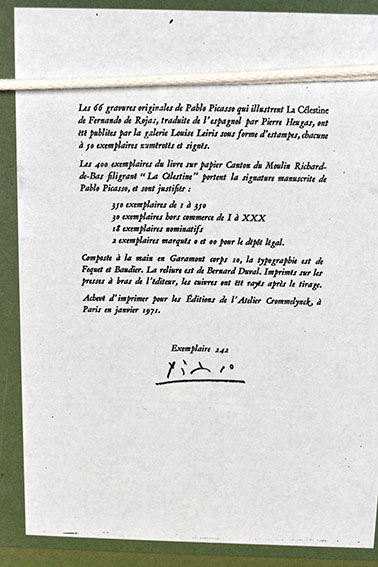 Les 66 gravures originales de Pablo Picasso qui illustrent La Célestine
de Fernando de Rojas, traduite de l'espagnol par Pierre Heugas, ont
été publiées par la galerie Louise Leiris sous forme d'estampes, chacune
à 50 exemplaires numérotés et signés.
Les 400 exemplaires du livre sur papier Canton du Moulin Richard-
de-Bas filigrané "La Célestine" portent la signature manuscrite de
Pablo Picasso, et sont justifiés :
350 exemplaires de 1 à 350
30 exemplaires hors commerce de I à XXX
18 exemplaires nominatifs
2 exemplaires marqués 0 et 00 pour le dépôt légal.
Composée à la main en Garamont corps 10, la typographie est de
Fequet et Baudier. La reliure est de Bernard Duval. Imprimés sur les
presses à bras de l'éditeur, les cuivres ont été rayés après le tirage.
Achevé d'imprimer pour les Éditions de l'Atelier Crommelynck, à
Paris en janvier 1971.
Exemplaire 242
Picasso